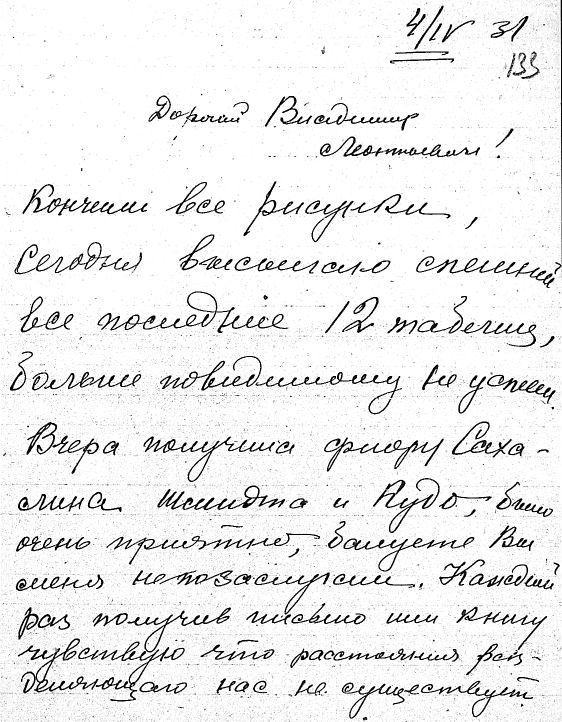 4/IV 31
133
Дорогой Владимир
Леонтьевич!
Кончили все рисунки,
сегодня высылаю спешной
все последние 12 таблиц,
больше повидимому не успеем.
Вчера получила флору Саха-
лина Шмидта и Кудо, было
очень приятно, балуете Вы
меня непозаслугам. Каждый
раз получив письмо или книгу
чувствую что расстояния раз-
деляющаго нас не существует